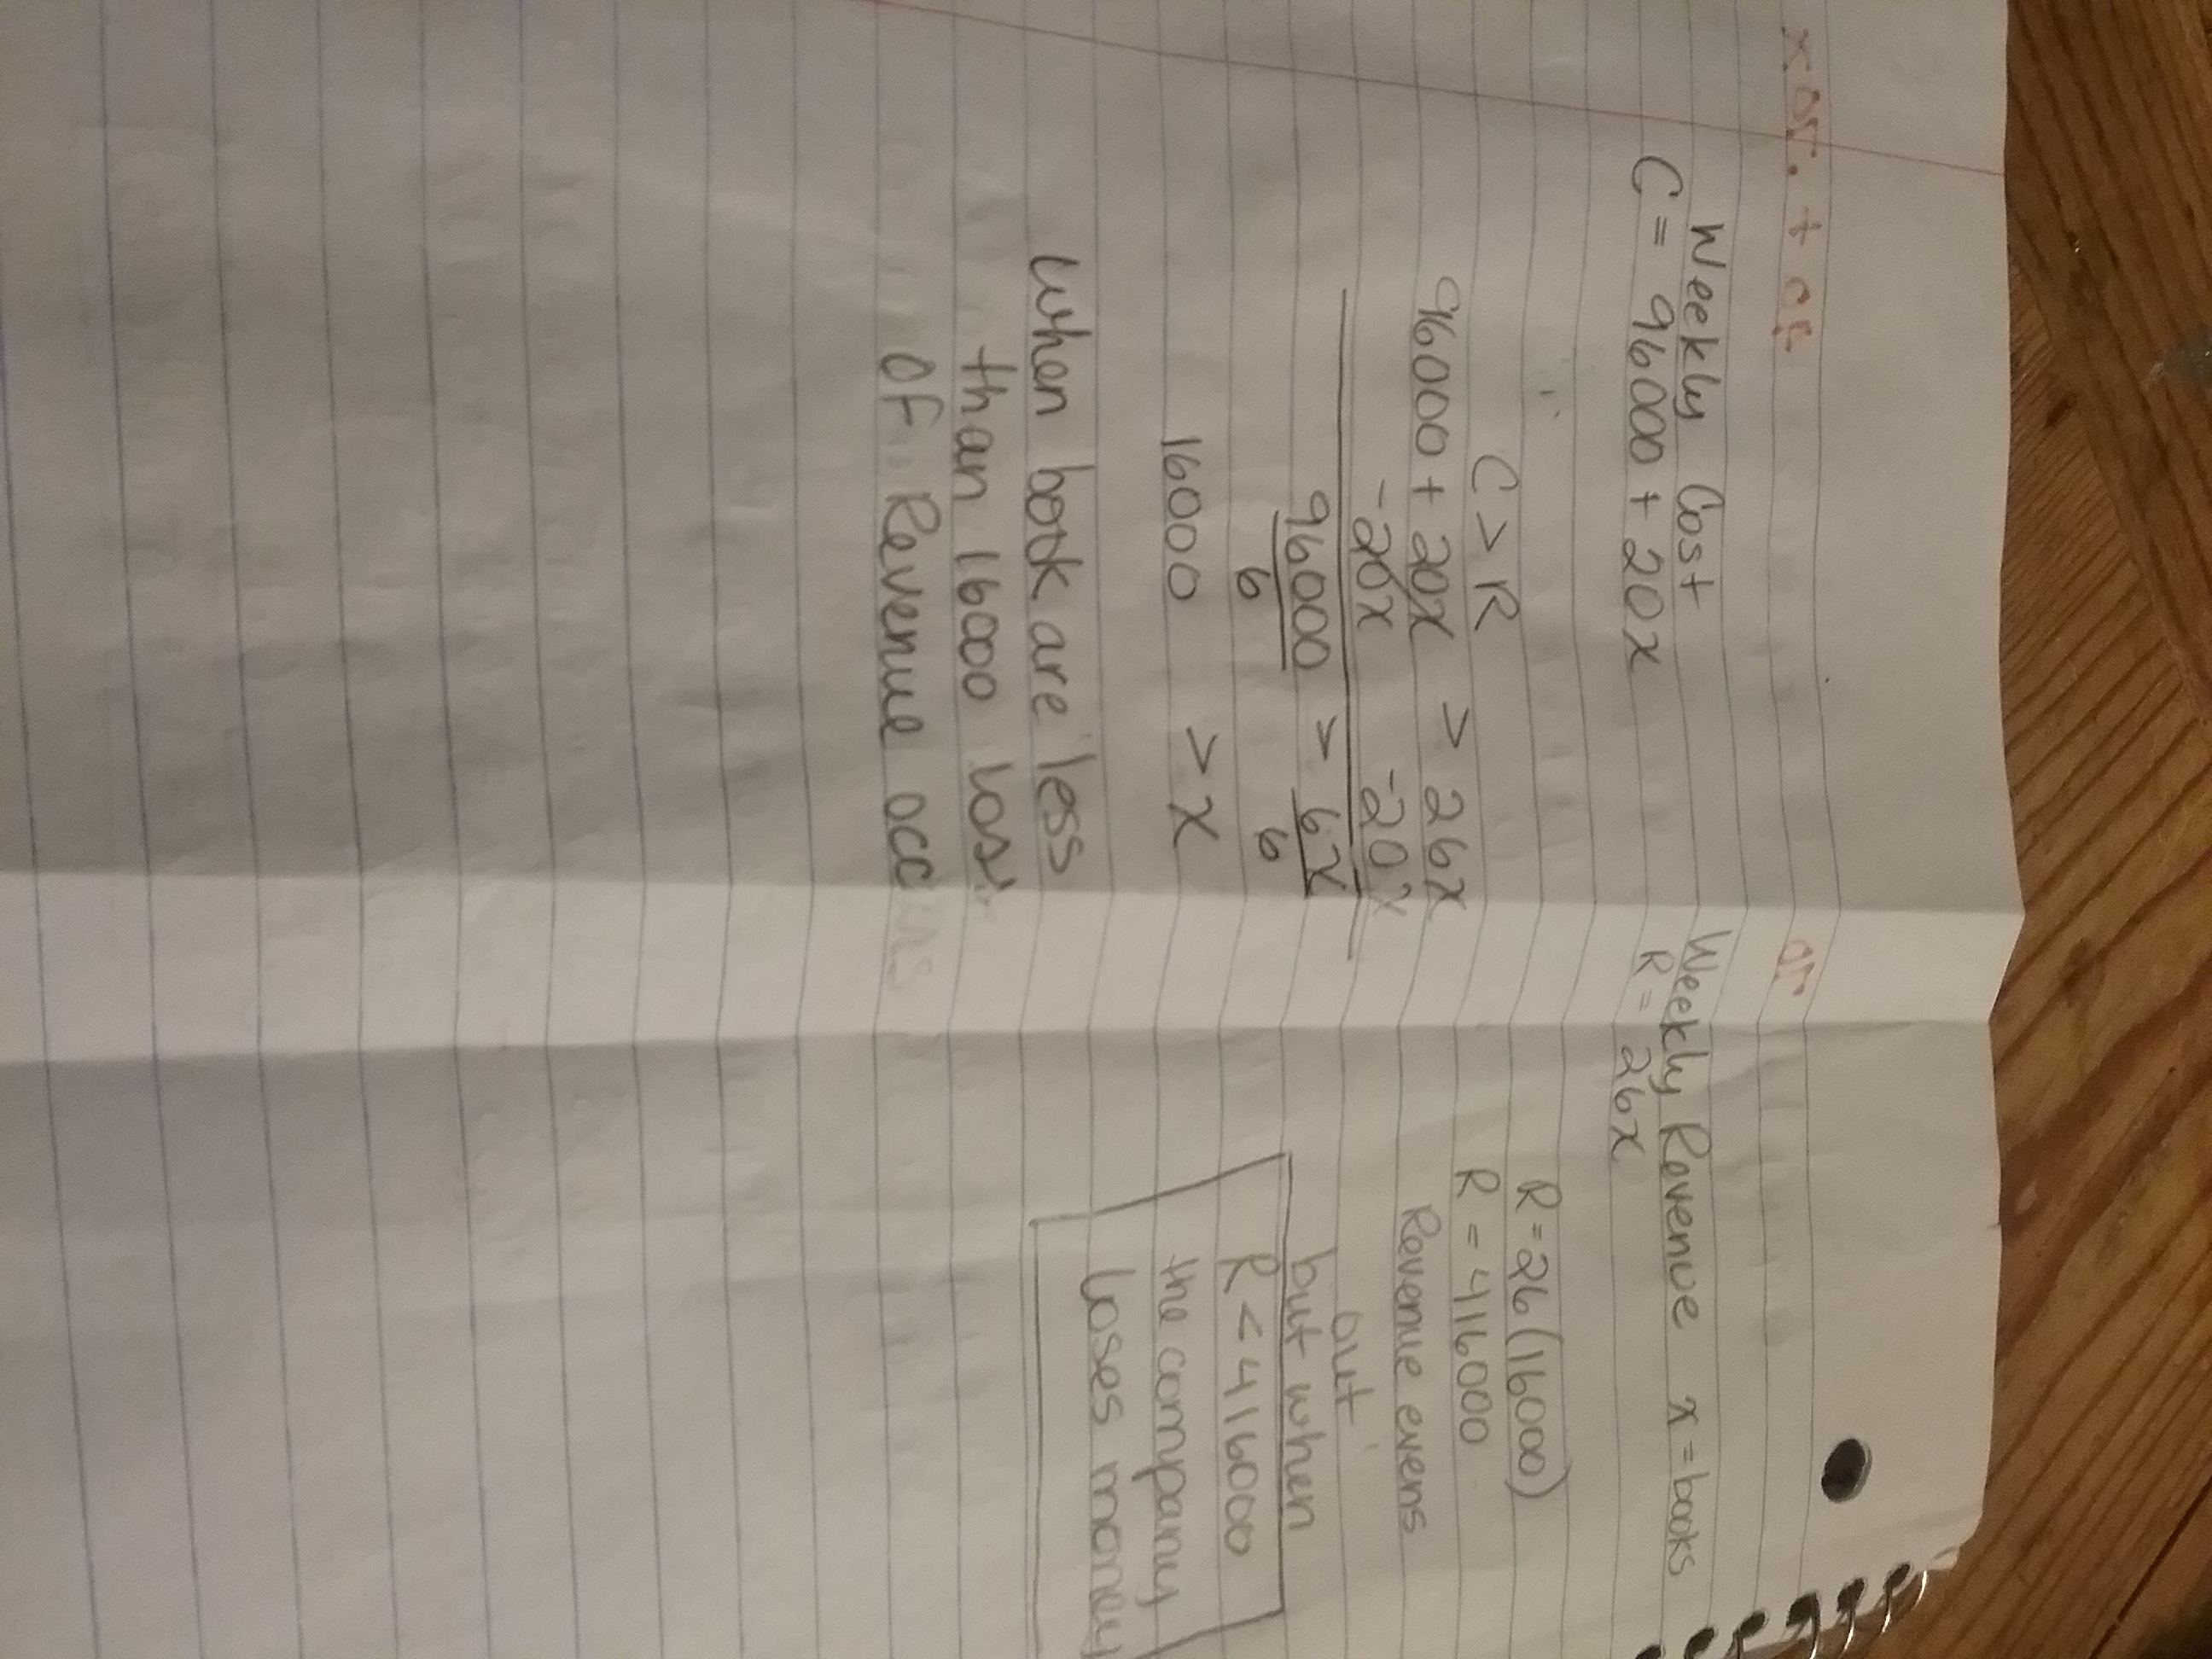 Weekly Cost
C = 96000 + 20x
C > R
96000 + 20x > 26x
-20x -20x
96000 > 6x
6 6
16000 > x
When book are less
than 16000 loss
of Revenue occurs
Weekly Revenue x = books
R = 26x
R = 26(16000)
R = 416000
Revenue evens
but
but when
R < 416000
the company
loses money